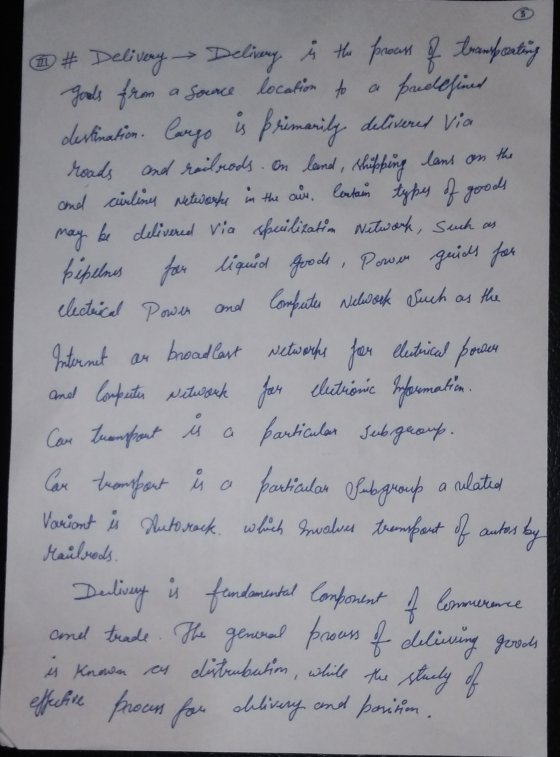 5
III # Delivery → Delivery is the process of transporting
goods from a source location to a predefined
destination. Cargo is primarily delivered Via
roads and railrods. On land, shipping lans on the
and airlines Networks in the air. Certain types of goods
may be delivered Via specilization Network, Such as
pipelnes for liquid goods, Power grids for
electrical Power and Computer Network Such as the
Internet or broadcast Networks for electrical power
and Computer Network for electronic Information.
Car transport is a particular Subgroup.
Car transport is a particular Subgroup a related
Variant is Autorack. which Involves transport of autos by
railrods.
Delivery is fundamental Component of Commerence
and trade. The general process of delivering goods
is Known as distrubution, while the study of
effective process for delivery and position.